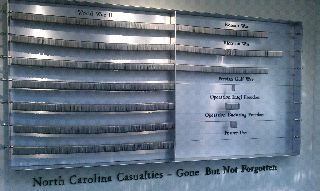 World War II
Korean War
Vietnam War
Persian Gulf War
Operation Iraqi Freedom
Operation Enduring Freedom
North Carolina Casualties - Gone But Not Forgotten